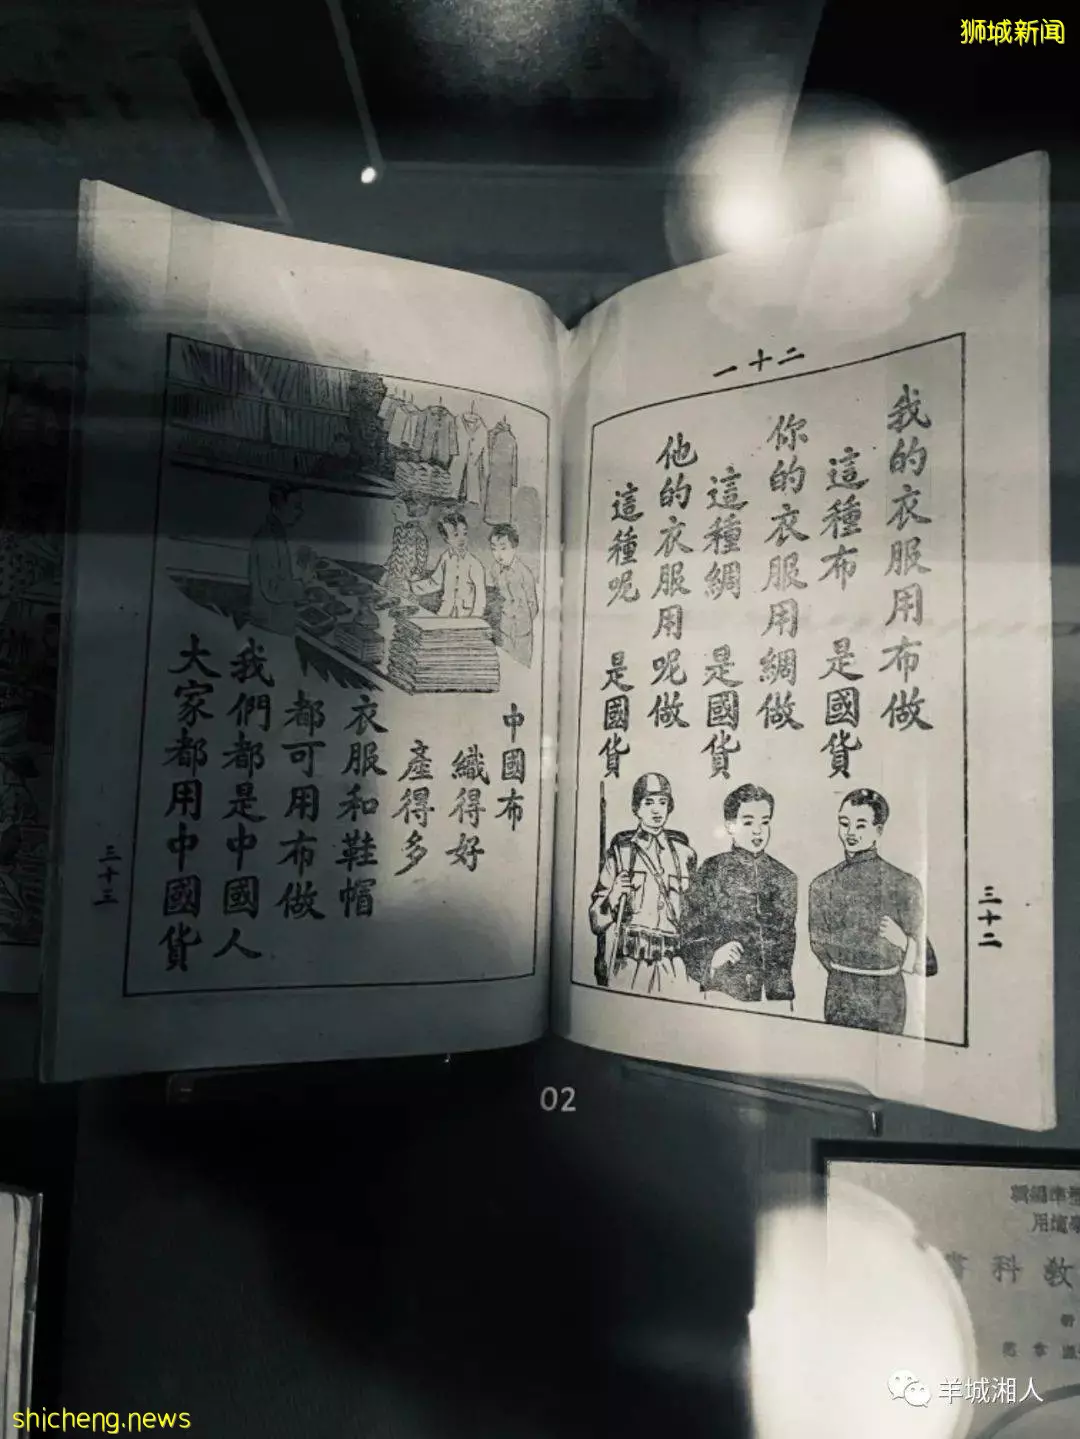 狮城新闻
二十一
我的衣服用布做
這種布 是國貨
你的衣服用綢做
這種綢 是國貨
他的衣服用呢做
這種呢 是國貨
三十二
中國布
織得好
產得多
衣服和鞋帽
都可用布做
我們都是中國人
大家都用中國貨
三十三
02
教科書
羊城湘人
shicheng.news